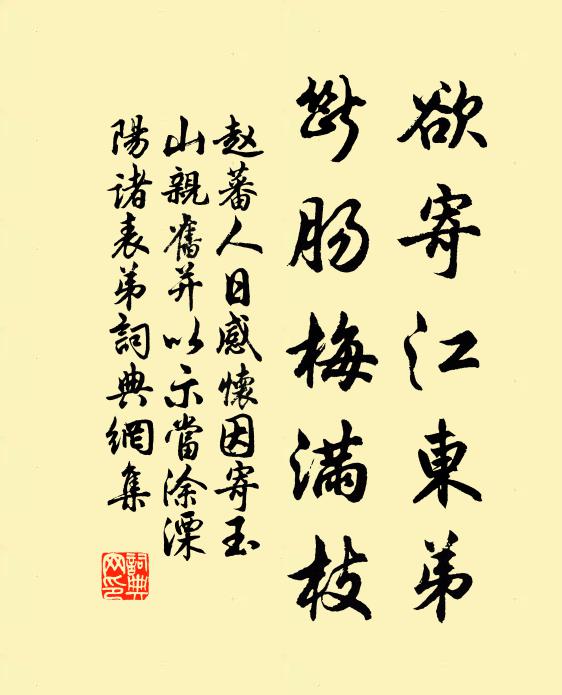 欲寄江東弟
斷腸梅滿枝
赵蕃人日感懷因寄玉
山親舊并以示當涂溧
陽諸表弟詞典網集
詞典网印